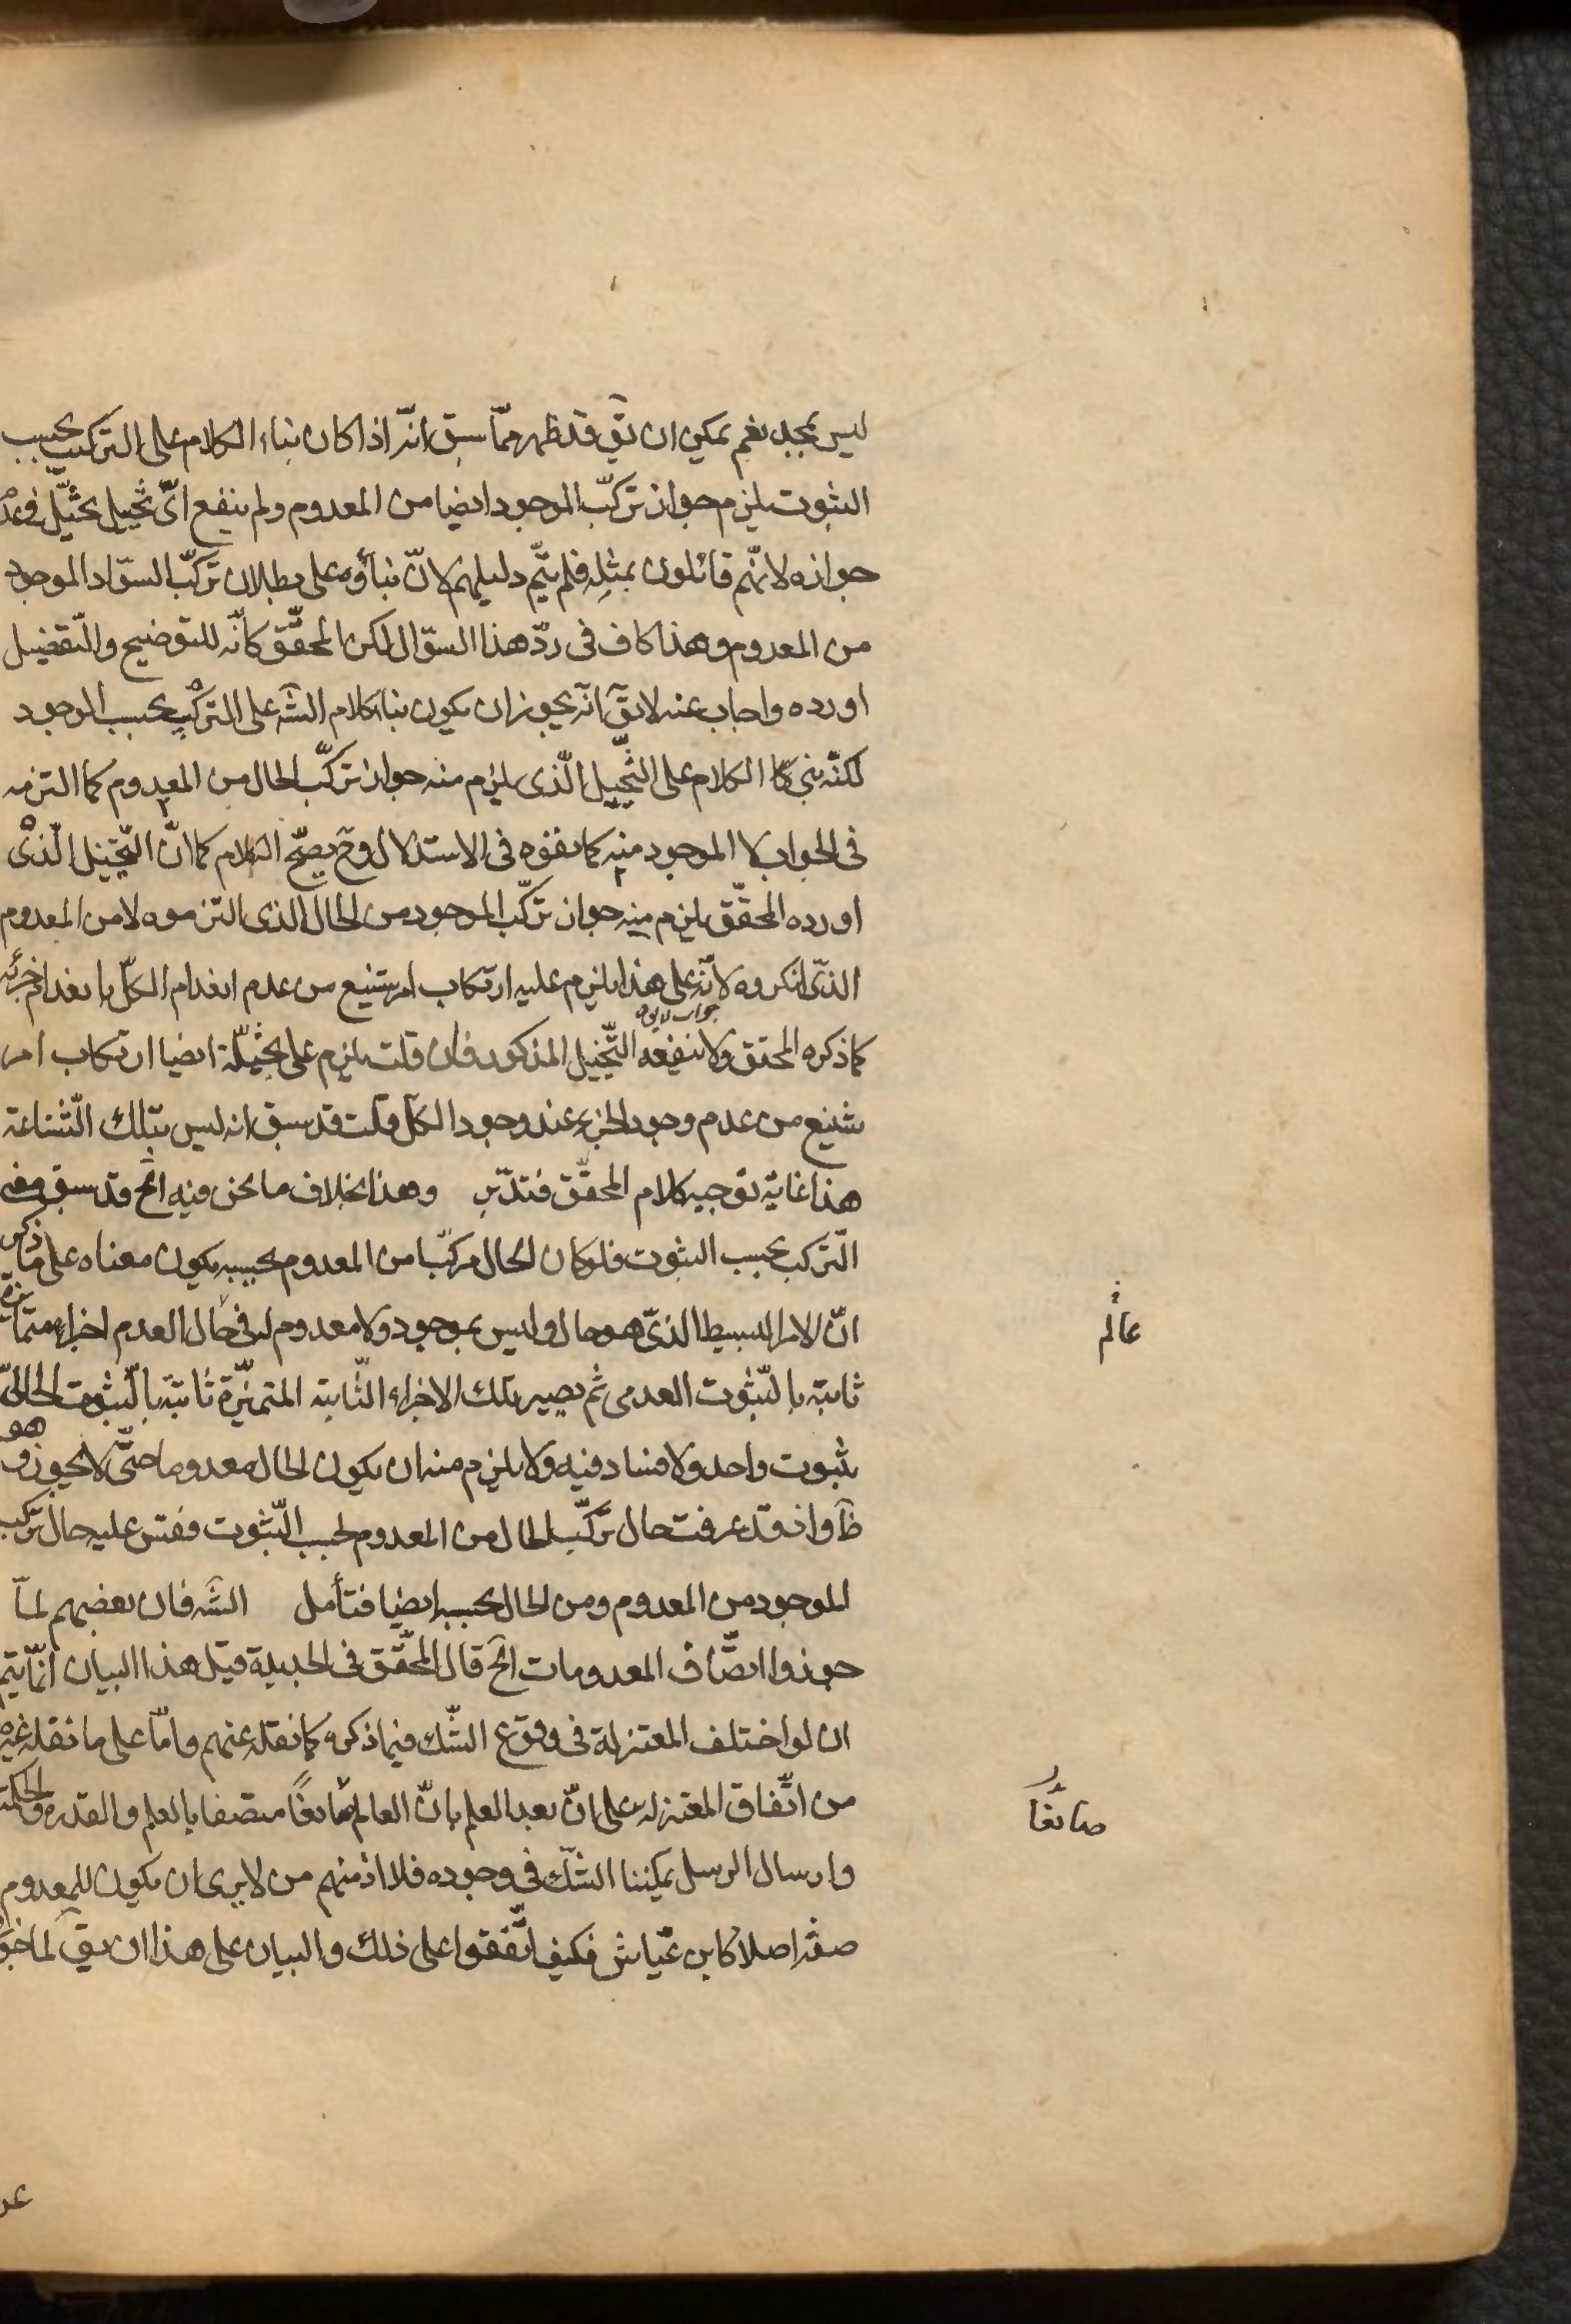 ليس بمجد نعم يمكن ان يقٓ قد ظهر ممّا سبق انّه اذا كان بناء الكلام على التركيب بحسب
الثبوت يلزم جواز تركّب الموجود ايضا من المعدوم ولم ينفع اىّ تخيل بخيّل فى عدم
جوازه لانّهم قائلون بمثله فلم يتمّ دليلهم لانّ بناؤه على بطلان تركّب السّواد الموجود
من المعدوم وهذا كاف فى ردّ هذا السؤال لكن المحقّق كانّه للتوضيح والتّفضيل
اورده واجاب عنه لا يقٓ انّه يجوز ان يكون بناء كلام الشّه على التركّب بحسب الوجود
لكنّه بنى الكلام على التخييل الّذى يلزم منه جواز تركّب الحال من المعدوم كما التزمه
فى الجواب لا الموجود منه كما نفوه فى الاستدلال وحٓ يصحّ الكلام كما انّ التّخييل الّذى
اورده المحقّق يلزم منه جواز تركّب الموجود من الحال الذى التزموه لا من المعدوم
الذّى انكروه لانّه على هذا يلزم عليه ارتكاب امر شنيع من عدم انعدام الكلّ بانعدام جزئه
جواب لا يقٓ
كما ذكره المحقق ولا ينفعه التّخييل المذكور فان قلت يلزم على ايضا ارتكاب امر
شنيع من عدم وجود الجزء عند وجود الكلّ قلت قد سبق انه ليس بتلك الشّناعة
هذا غاية توجيه كلام المحقّق فتدّبر وهذا بخلاف ما نحن فيه الخٓ قد سبق معنى
التّركب بحسب الثبوت فلو كان الحال مركّبا من المعدوم بحسبه يكون معناه على ما ذكره
انّ الامر البسيط الذّى هو حال وليس بموجود ولا معدوم له فى حال العدم اجزاء متمايزة
عالم
ثابتة بالثّبوت العدمى ثم يصير تلك الاجزاء الثّابتة المتميّزة ثابتة بالثّبوت الحالىّ
بثبوت واحد ولا فساد فيه ولا يلزم منه ان يكون الحال معدوما حتّى لا يجوز وهو
ظٓ واذ قد عرفت حال تركّب الحال من المعدوم بحسب الثّبوت فقس عليه حال تركب
الموجود من المعدوم ومن الحال بحسبه ايضا فتأمل الشّه فان بعضهم لمّا
جوزوا اتّصاف المعدومات الخٓ قال المحقّق فى الجديدة قيل هذا البيان انّما يتم
ان لو اختلف المعتزلة فى وقوع الشّك فيما ذكره كما نقله عنهم وامّا على ما نقله غيره
من اتّفاق المعتزله على انّ بعد العلم بانّ العالم صانعًا متصفا بالعلم والقدره والحكمة
صانعًا
وارسال الرسل يمكننا الشّك فى وجوده فلا اذ منهم من لا يرى ان يكون للمعدوم
صفة اصلا كابن عيّاش فكيف اتّفقوا على ذلك والبيان على هذا ان يقٓ لما جوّز